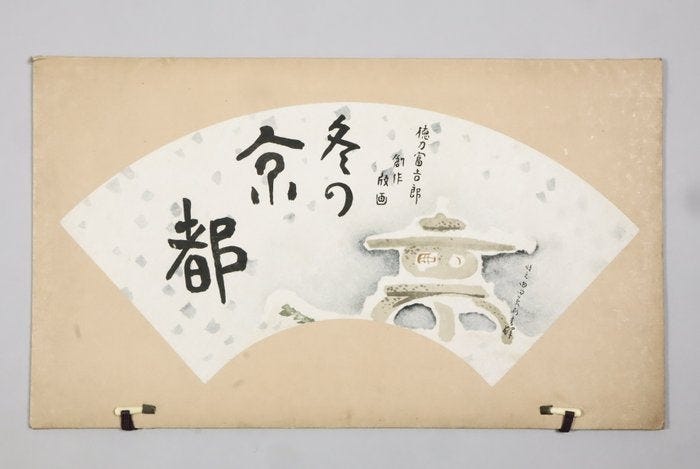 冬の
京
都
徳力富吉郎
創作
版画